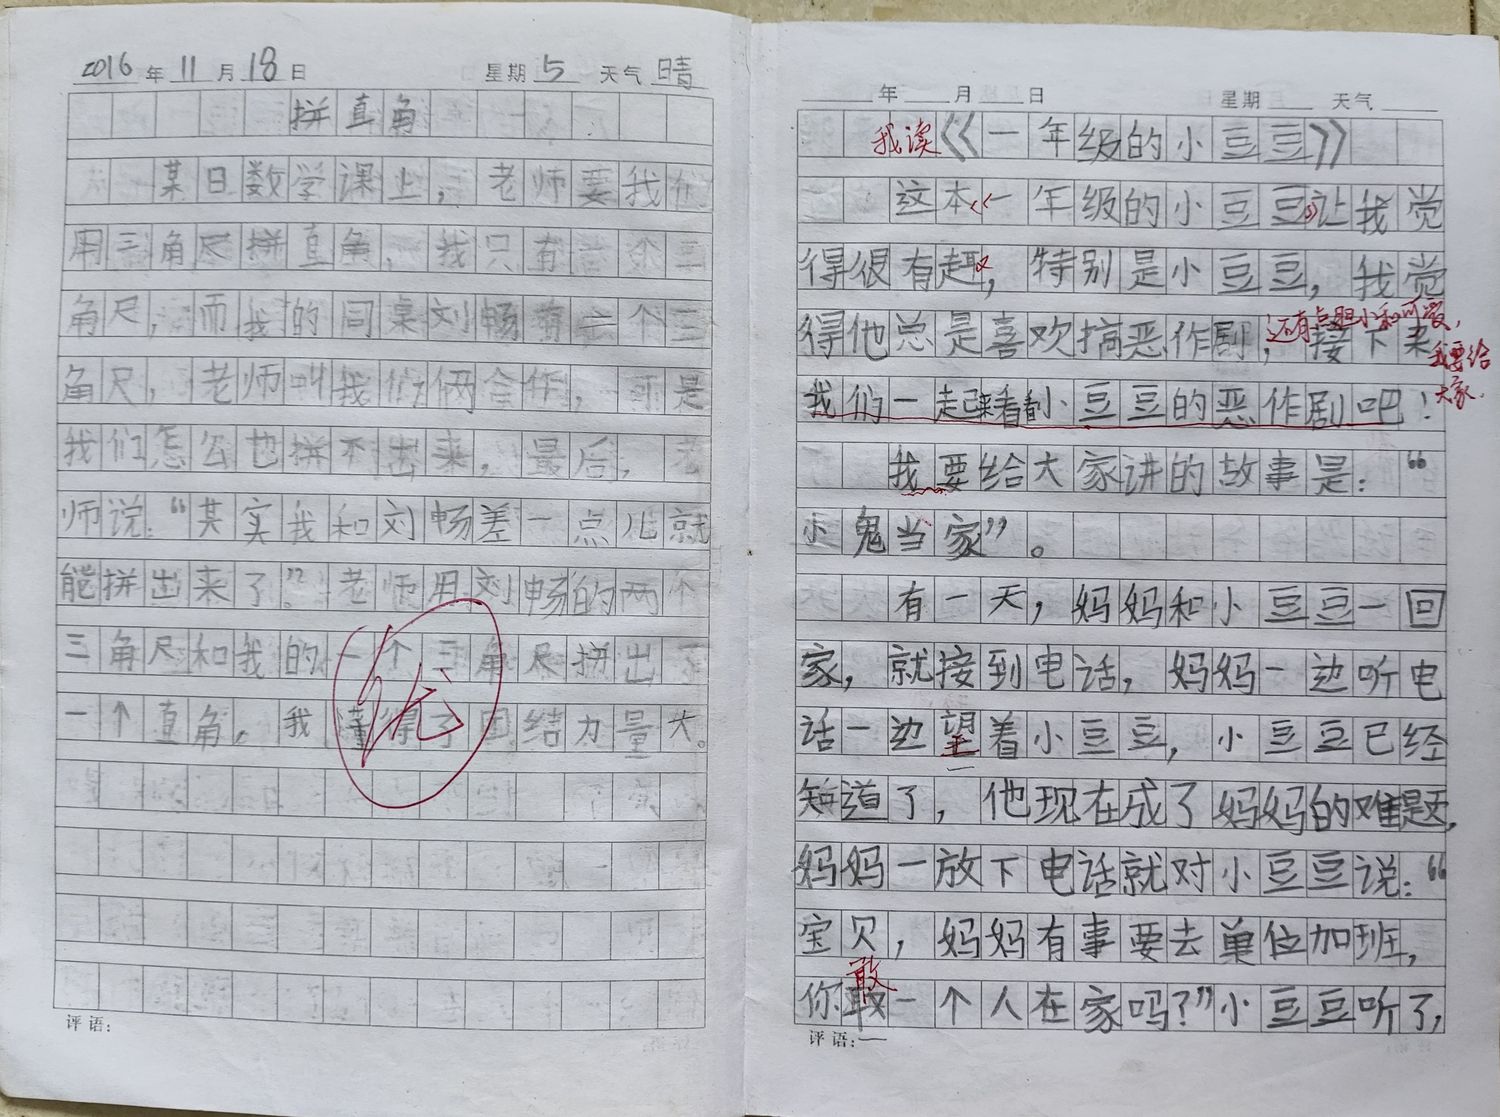 2016年11月18日 星期5 天气晴
拼直角
某日数学课上，老师要我们
用三角尺拼直角，我只有一个三
角尺，而我的同桌刘畅有二个三
角尺，老师叫我们俩合作，可是
我们怎么也拼不出来，最后，老
师说：“其实我和刘畅差一点儿就
能拼出来了”。老师用刘畅的两个
三角尺和我的一个三角尺拼出了
一个直角，我懂得了团结力量大。
优
评语：
年 月 日 星期 天气
我读《一年级的小豆豆》
这本《一年级的小豆豆》让我觉
得很有趣，特别是小豆豆，我觉
得他总是喜欢搞恶作剧，接下来
还有点胆小和可爱，
我要给
大家
我们一起来看看小豆豆的恶作剧吧！
我要给大家讲的故事是：“
小鬼当家”。
有一天，妈妈和小豆豆一回
家，就接到电话，妈妈一边听电
话一边望着小豆豆，小豆豆已经
知道了，他现在成了妈妈的难题，
妈妈一放下电话就对小豆豆说：“
宝贝，妈妈有事要去单位加班，
敢
你取一个人在家吗？”小豆豆听了，
评语：